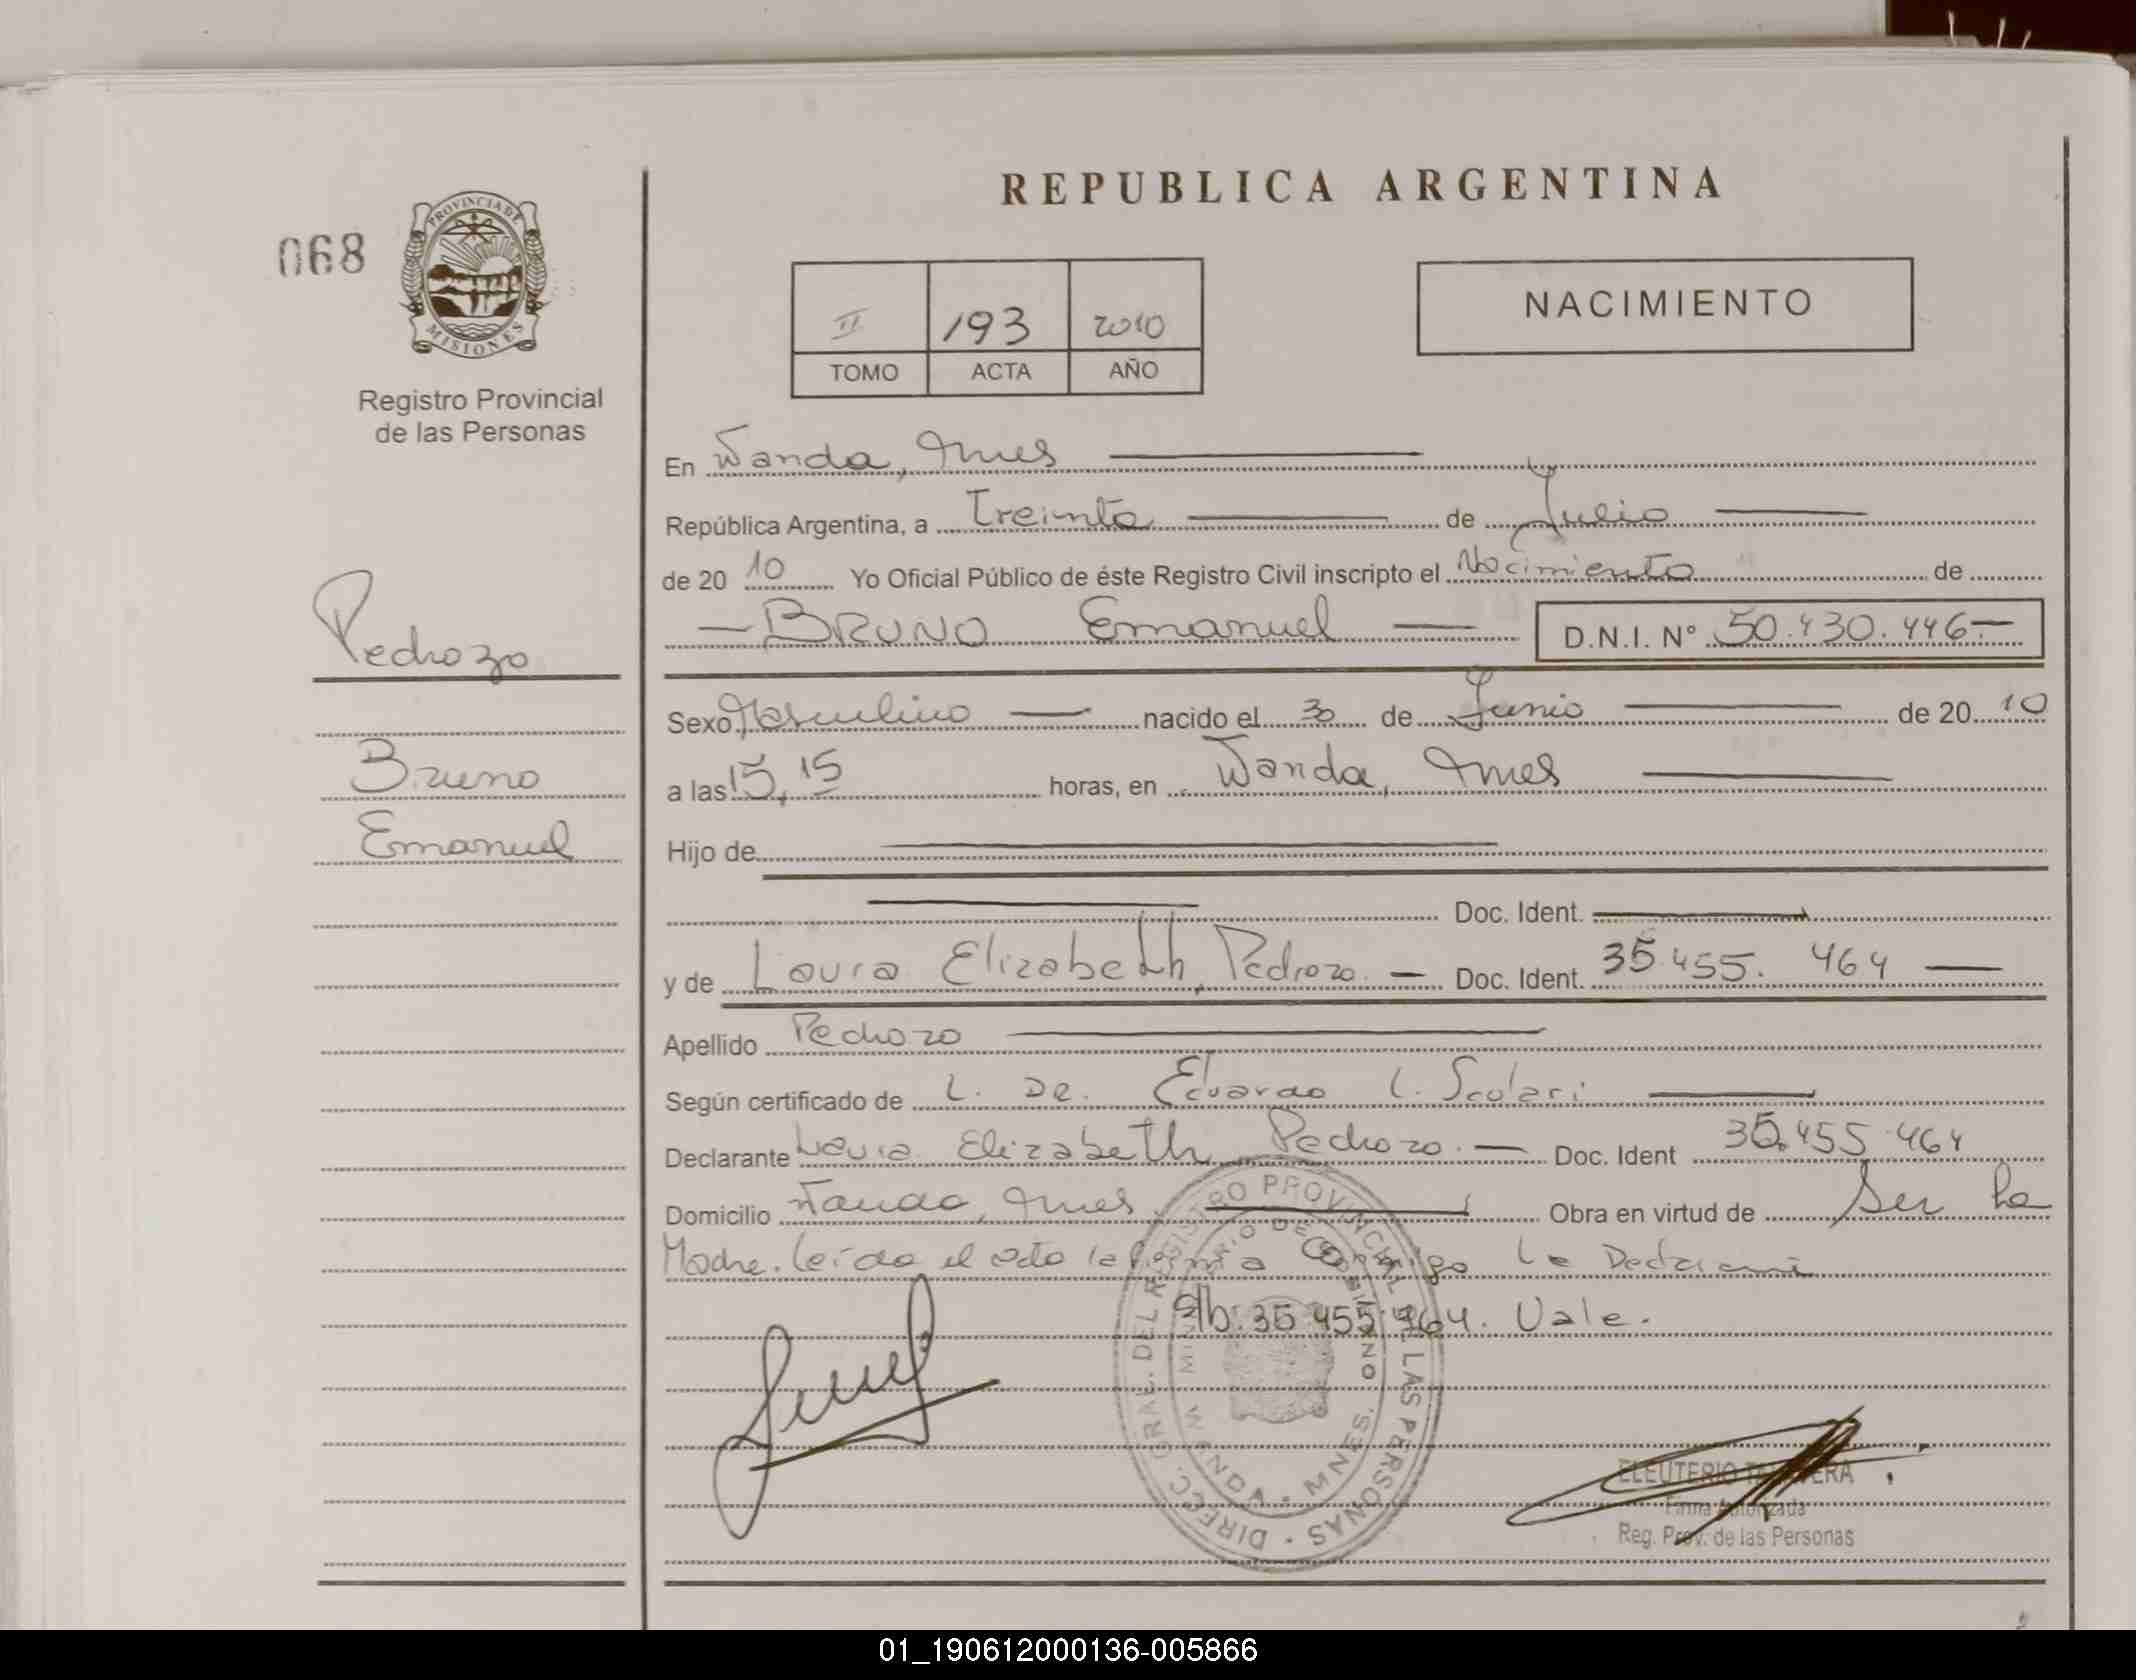 REPUBLICA ARGENTINA
068
PROVINCIA DE
MISIONES
Registro Provincial
de las Personas
II 193 2010
TOMO ACTA AÑO
NACIMIENTO
Pedrozo
Bruno
Emanuel
En Wanda, Mnes
República Argentina, a Treinta de Julio
de 20 10 Yo Oficial Público de éste Registro Civil inscripto el Nacimiento de
BRUNO Emanuel D.N.I. N° 50.430.446.-
Sexo Masculino nacido el 30 de Junio de 20 10
a las 15,15 horas, en Wanda, Mnes
Hijo de
Doc. Ident.
y de Laura Elizabeth, Pedrozo. Doc. Ident. 35.455.464
Apellido Pedrozo
Según certificado de L. De. Eduardo L. Scolari
Declarante Laura Elizabeth Pedrozo. Doc. Ident 35.455.464
Domicilio Wanda, Mnes Obra en virtud de Ser la
Madre. Leída el acta la firma Conmigo la
35.455.464. Vale.
DIRECC. GRAL. DEL REGISTRO PROVINCIAL DE LAS PERSONAS
MINISTERIO DE GOBIERNO
WANDA - MNES.
ELEUTERIO
Firma Autorizada
Reg. Prov. de las Personas
01_190612000136-005866